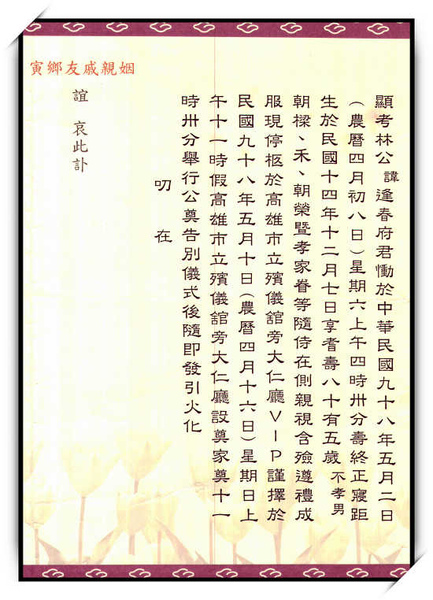 顯考林公諱逢春府君慟於中華民國九十八年五月二日
(農曆四月初八日)星期六上午四時卅分壽終正寢距
生於民國十四年十二月七日享耆壽八十有五歲不孝男
朝樑、禾、朝榮暨孝家眷等隨侍在側親視含殮遵禮成
服現停柩於高雄市立殯儀舘旁大仁廳VIP謹擇於
民國九十八年五月十日(農曆四月十六日)星期日上
午十一時假高雄市立殯儀舘旁大仁廳設奠家奠十一
時卅分舉行公奠告別儀式後隨即發引火化
叨在
姻親戚友鄉寅
誼 哀此訃